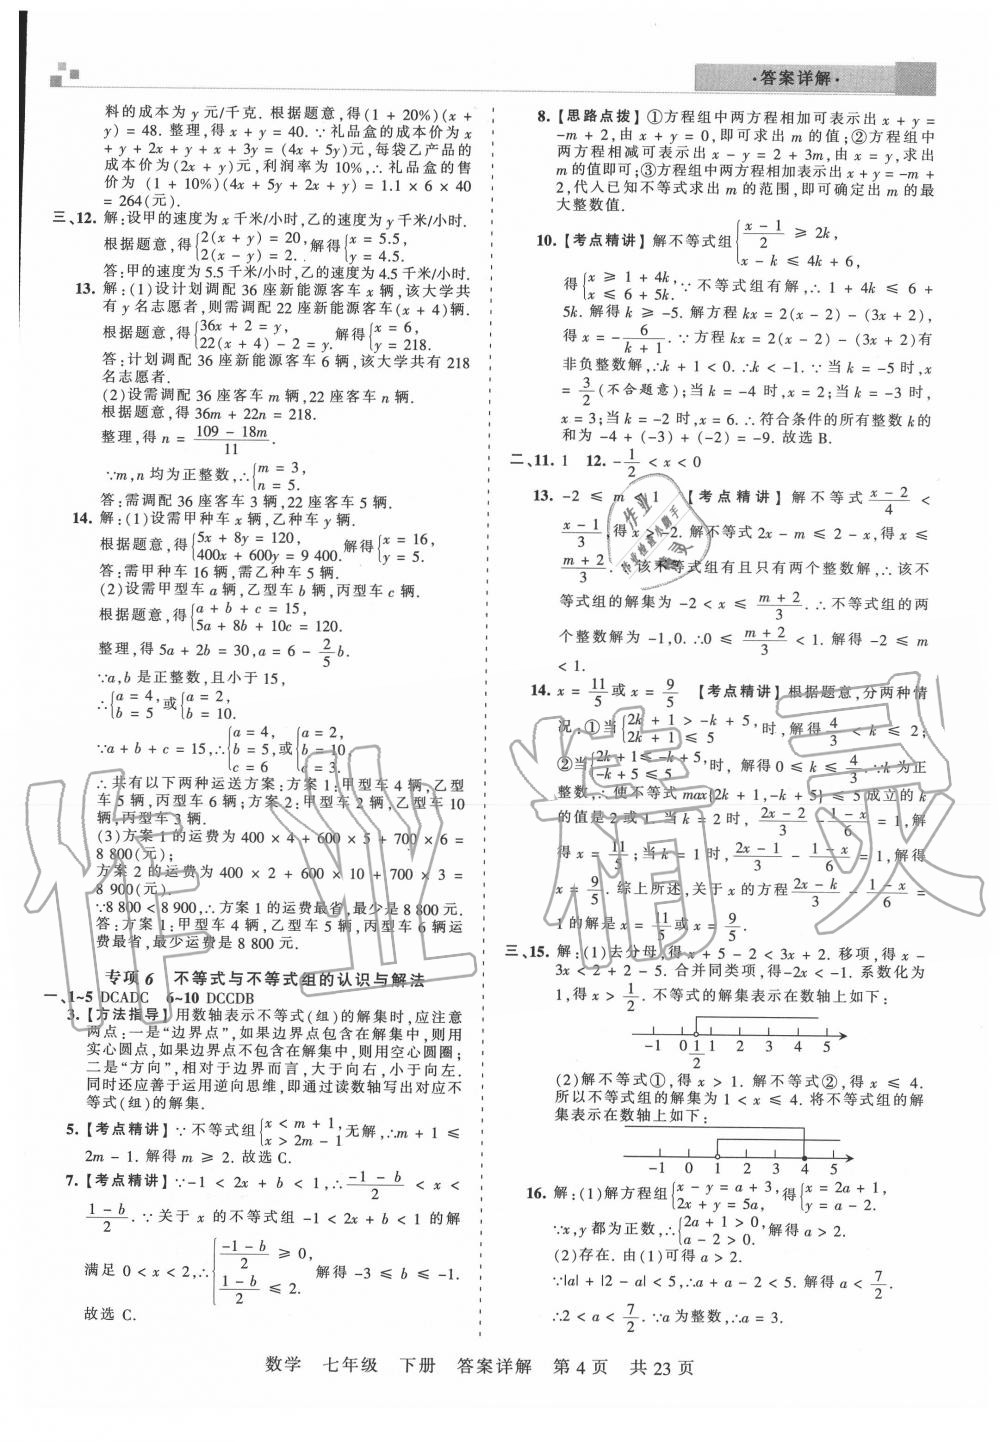 ·答案详解·
料的成本为 y 元/千克. 根据题意,得(1 + 20%)(x +
y) = 48. 整理,得 x + y = 40. ∵礼品盒的成本价为 x
+ y + 2x + y + x + 3y = (4x + 5y)元,每袋乙产品的
成本价为(2x + y)元,利润率为 10%,∴礼品盒的售
价为 (1 + 10%)(4x + 5y + 2x + y) = 1.1 × 6 × 40
= 264(元).
三、12. 解:设甲的速度为 x 千米/小时,乙的速度为 y 千米/小时.
根据题意,得{2(x + y) = 20, 2(x - y) = 2. 解得{x = 5.5, y = 4.5.
答:甲的速度为 5.5 千米/小时,乙的速度为 4.5 千米/小时.
13. 解:(1)设计划调配 36 座新能源客车 x 辆,该大学共
有 y 名志愿者,则需调配 22 座新能源客车(x + 4)辆.
根据题意,得{36x + 2 = y, 22(x + 4) - 2 = y. 解得{x = 6, y = 218.
答:计划调配 36 座新能源客车 6 辆,该大学共有 218
名志愿者.
(2)设需调配 36 座客车 m 辆,22 座客车 n 辆.
根据题意,得 36m + 22n = 218.
整理,得 n = (109 - 18m)/11
∵m,n 均为正整数,∴{m = 3, n = 5.
答:需调配 36 座客车 3 辆,22 座客车 5 辆.
14. 解:(1)设需甲种车 x 辆,乙种车 y 辆.
根据题意,得{5x + 8y = 120, 400x + 600y = 9 400. 解得{x = 16, y = 5.
答:需甲种车 16 辆,需乙种车 5 辆.
(2)设需甲型车 a 辆,乙型车 b 辆,丙型车 c 辆.
根据题意,得{a + b + c = 15, 5a + 8b + 10c = 120.
整理,得 5a + 2b = 30,a = 6 - 2/5 b.
∵a,b 是正整数,且小于 15,
∴{a = 4, b = 5 或{a = 2, b = 10.
∵a + b + c = 15,∴{a = 4, b = 5, c = 6 或{a = 2, b = 10, c = 3.
∴共有以下两种运送方案:方案 1:甲型车 4 辆,乙型
车 5 辆,丙型车 6 辆;方案 2:甲型车 2 辆,乙型车 10
辆,丙型车 3 辆.
(3)方案 1 的运费为 400 × 4 + 600 × 5 + 700 × 6 =
8 800(元);
方案 2 的运费为 400 × 2 + 600 × 10 + 700 × 3 =
8 900(元).
∵8 800 < 8 900,∴方案 1 的运费最省,最少是 8 800 元.
答:方案 1:甲型车 4 辆,乙型车 5 辆,丙型车 6 辆运
费最省,最少运费是 8 800 元.
专项 6 不等式与不等式组的认识与解法
一、1~5 DCADC 6~10 DCCDB
3. 【方法指导】用数轴表示不等式(组)的解集时,应注意
两点:一是“边界点”,如果边界点包含在解集中,则用
实心圆点,如果边界点不包含在解集中,则用空心圆圈;
二是“方向”,相对于边界而言,大于向右,小于向左.
同时还应善于运用逆向思维,即通过读数轴写出对应不
等式(组)的解集.
5. 【考点精讲】∵不等式组{x < m + 1, x > 2m - 1 无解,∴m + 1 ≤
2m - 1. 解得 m ≥ 2. 故选 C.
7. 【考点精讲】∵-1 < 2x + b < 1,∴(-1 - b)/2 < x <
(1 - b)/2. ∵关于 x 的不等式组 -1 < 2x + b < 1 的解
满足 0 < x < 2,∴{(-1 - b)/2 ≥ 0, (1 - b)/2 ≤ 2. 解得 -3 ≤ b ≤ -1.
故选 C.
8. 【思路点拨】①方程组中两方程相加可表示出 x + y =
-m + 2,由 x + y = 0,即可求出 m 的值;②方程组中
两方程相减可表示出 x - y = 2 + 3m,由 x = y,求出
m 的值即可;③方程组中两方程相加表示出 x + y = -m +
2,代入已知不等式求出 m 的范围,即可确定出 m 的最
大整数值.
10. 【考点精讲】解不等式组{(x - 1)/2 ≥ 2k, x - k ≤ 4k + 6,
得{x ≥ 1 + 4k, x ≤ 6 + 5k. ∵不等式组有解,∴1 + 4k ≤ 6 +
5k. 解得 k ≥ -5. 解方程 kx = 2(x - 2) - (3x + 2),
得 x = -6/(k + 1). ∵方程 kx = 2(x - 2) - (3x + 2)有
非负整数解,∴k + 1 < 0.∴k < -1. ∵当 k = -5 时,x
= 3/2(不合题意);当 k = -4 时,x = 2;当 k = -3 时,
x = 3;当 k = -2 时,x = 6. ∴符合条件的所有整数 k 的
和为 -4 + (-3) + (-2) = -9. 故选 B.
二、11. 1 12. -1/2 < x < 0
13. -2 ≤ m < 1 【考点精讲】解不等式 (x - 2)/4 <
(x - 1)/3,得 x > -2. 解不等式 2x - m ≤ 2 - x,得 x ≤
(m + 2)/3. ∵该不等式组有且只有两个整数解,∴该不
等式组的解集为 -2 < x ≤ (m + 2)/3. ∴不等式组的两
个整数解为 -1,0. ∴0 ≤ (m + 2)/3 < 1. 解得 -2 ≤ m
< 1.
14. x = 11/5 或 x = 9/5 【考点精讲】根据题意,分两种情
况:①当{2k + 1 > -k + 5, 2k + 1 ≤ 5 时,解得 4/3 < k ≤ 2;
②当{2k + 1 ≤ -k + 5, -k + 5 ≤ 5 时,解得 0 ≤ k ≤ 4/3. ∵k 为正
整数,∴使不等式 max{2k + 1,-k + 5} ≤ 5 成立的 k
的值是 2 或 1. 当 k = 2 时,(2x - 2)/3 - (1 - x)/6 = 1,解
得 x = 11/5;当 k = 1 时,(2x - 1)/3 - (1 - x)/6 = 1,解得
x = 9/5. 综上所述,关于 x 的方程 (2x - k)/3 - (1 - x)/6 =
1 的解是 x = 11/5 或 x = 9/5.
三、15. 解:(1)去分母,得 x + 5 - 2 < 3x + 2. 移项,得 x -
3x < 2 + 2 - 5. 合并同类项,得 -2x < -1. 系数化为
1,得 x > 1/2. 不等式的解集表示在数轴上如下:
-1 0 1/2 1 2 3 4 5
(2)解不等式①,得 x > 1. 解不等式②,得 x ≤ 4.
所以不等式组的解集为 1 < x ≤ 4. 将不等式组的解
集表示在数轴上如下:
-1 0 1 2 3 4 5
16. 解:(1)解方程组{x - y = a + 3, 2x + y = 5a, 得{x = 2a + 1, y = a - 2.
∵x,y 都为正数,∴{2a + 1 > 0, a - 2 > 0. 解得 a > 2.
(2)存在. 由(1)可得 a > 2.
∵|a| + |2 - a| < 5,∴a + a - 2 < 5. 解得 a < 7/2.
∴2 < a < 7/2. ∵a 为整数,∴a = 3.
数学 七年级 下册 答案详解 第 4 页 共 23 页
作业精灵